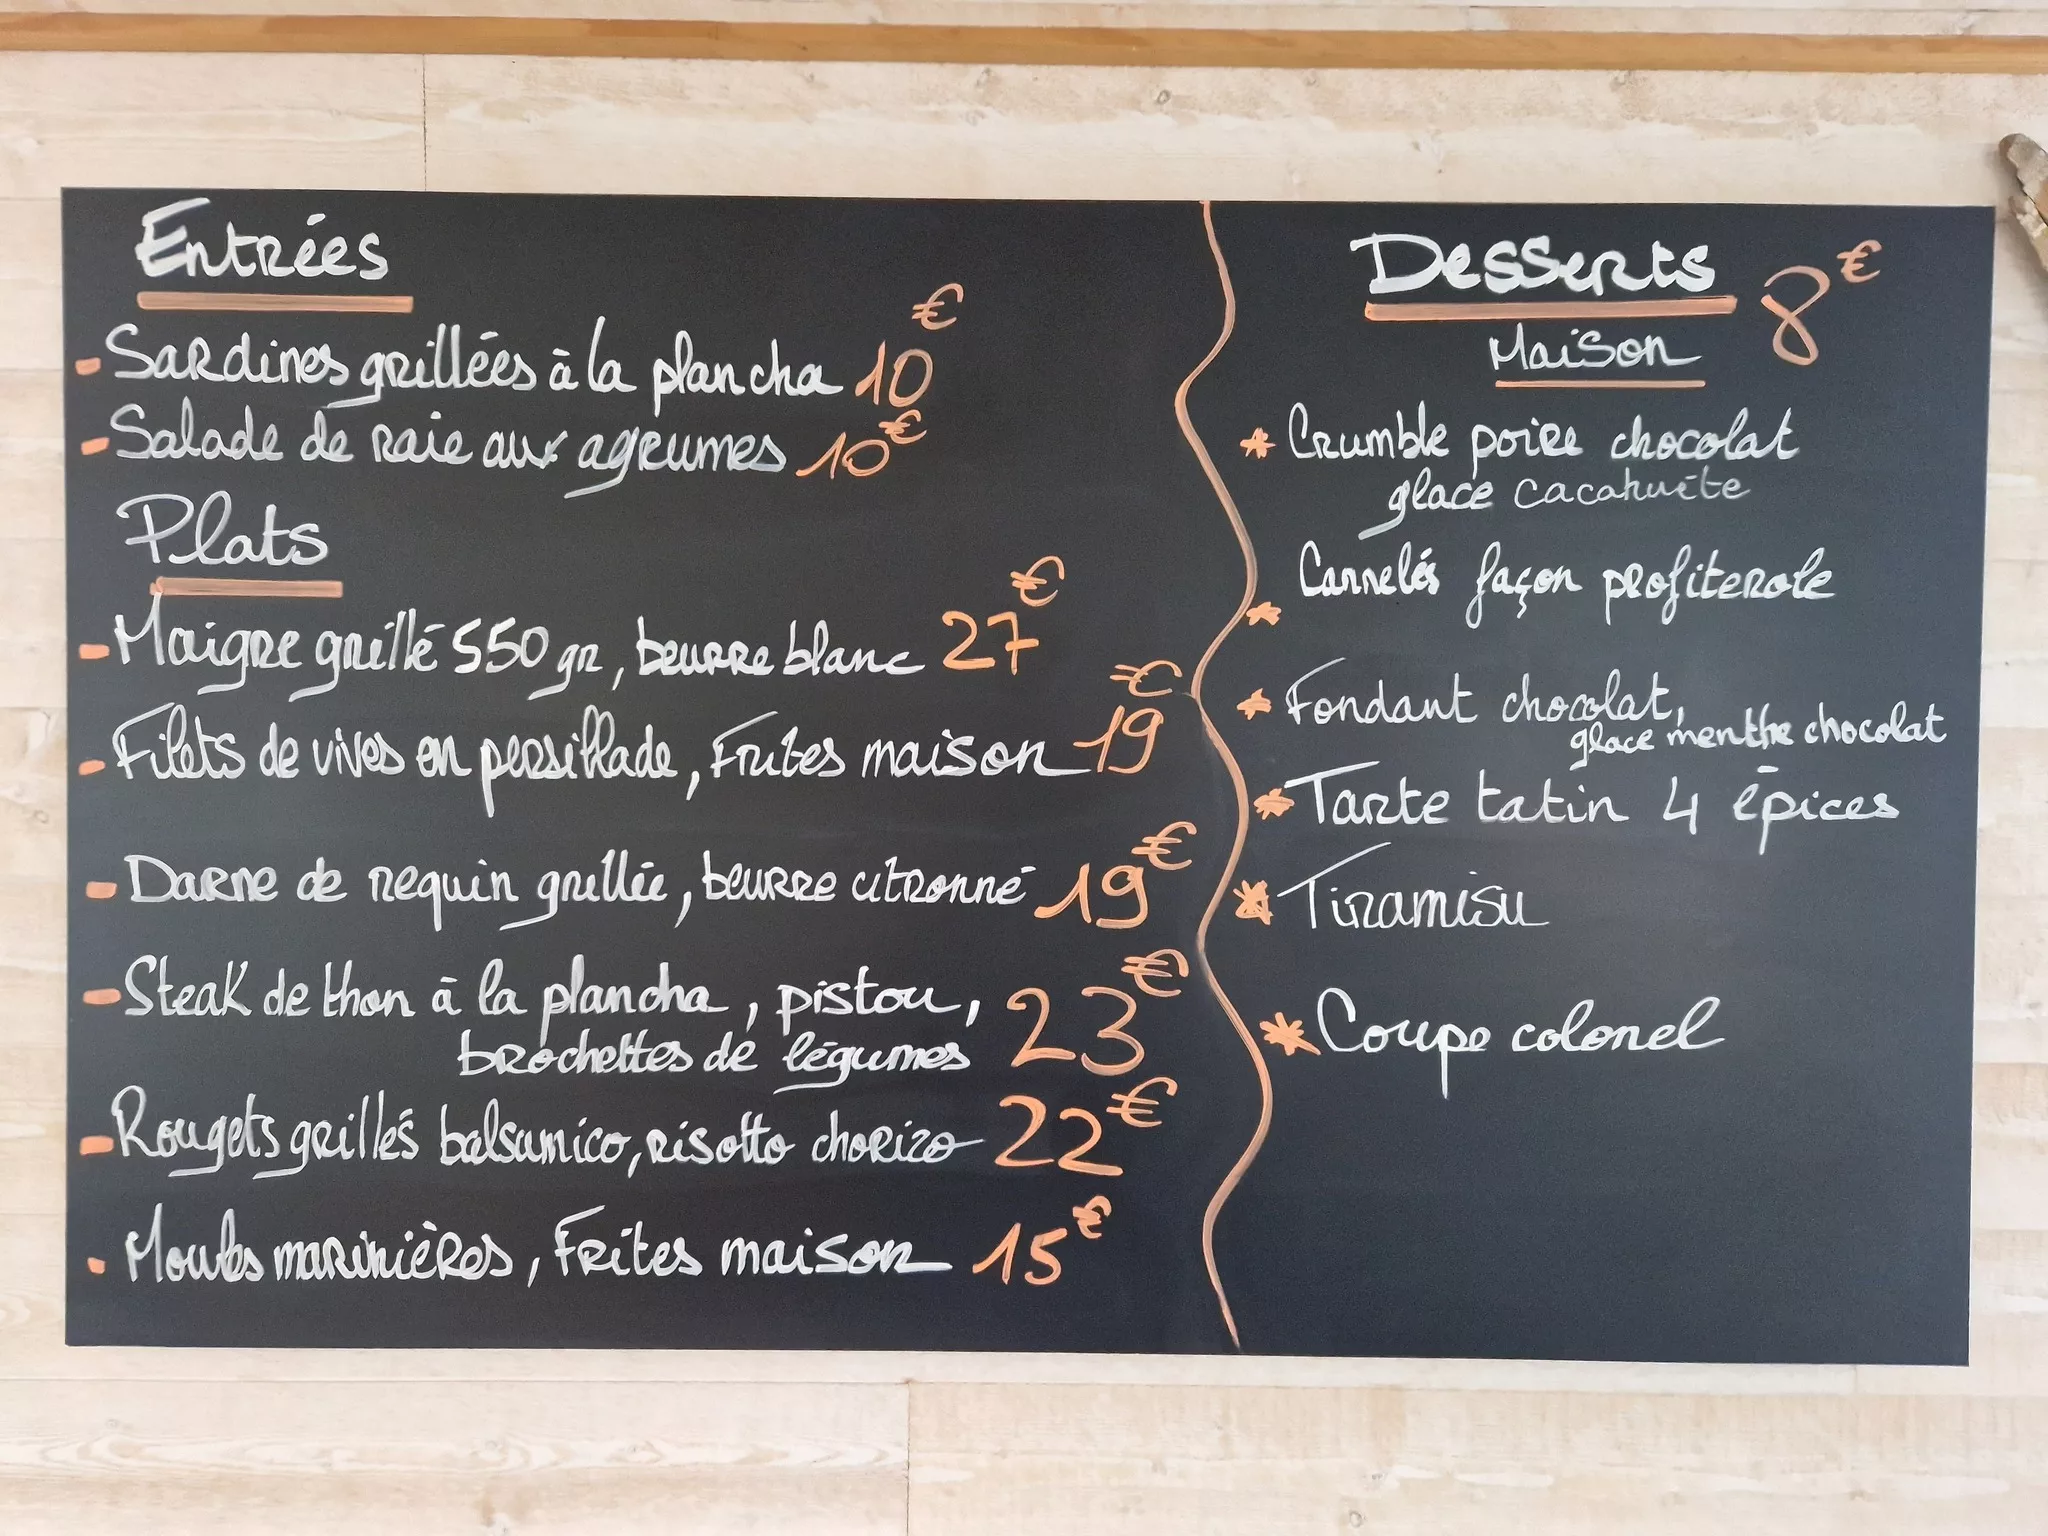 Entrées
- Sardines grillées à la plancha 10€
- Salade de raie aux agrumes 10€
Plats
- Maigre grillé 550 gr, beurre blanc 27€
- Filets de vives en persillade, Frites maison 19€
- Darne de requin grillée, beurre citronné 19€
- Steak de thon à la plancha, pistou,
brochettes de légumes 23€
- Rougets grillés balsamico, risotto chorizo 22€
- Moules marinières, Frites maison 15€
Desserts 8€
Maison
* Crumble poire chocolat
glace cacahuète
* Cannelés façon profiterole
* Fondant chocolat,
glace menthe chocolat
* Tarte tatin 4 épices
* Tiramisu
* Coupe colonel